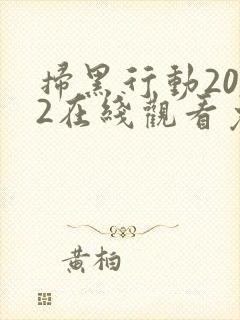 掃黑行動20
2在綫觀看
黃柏